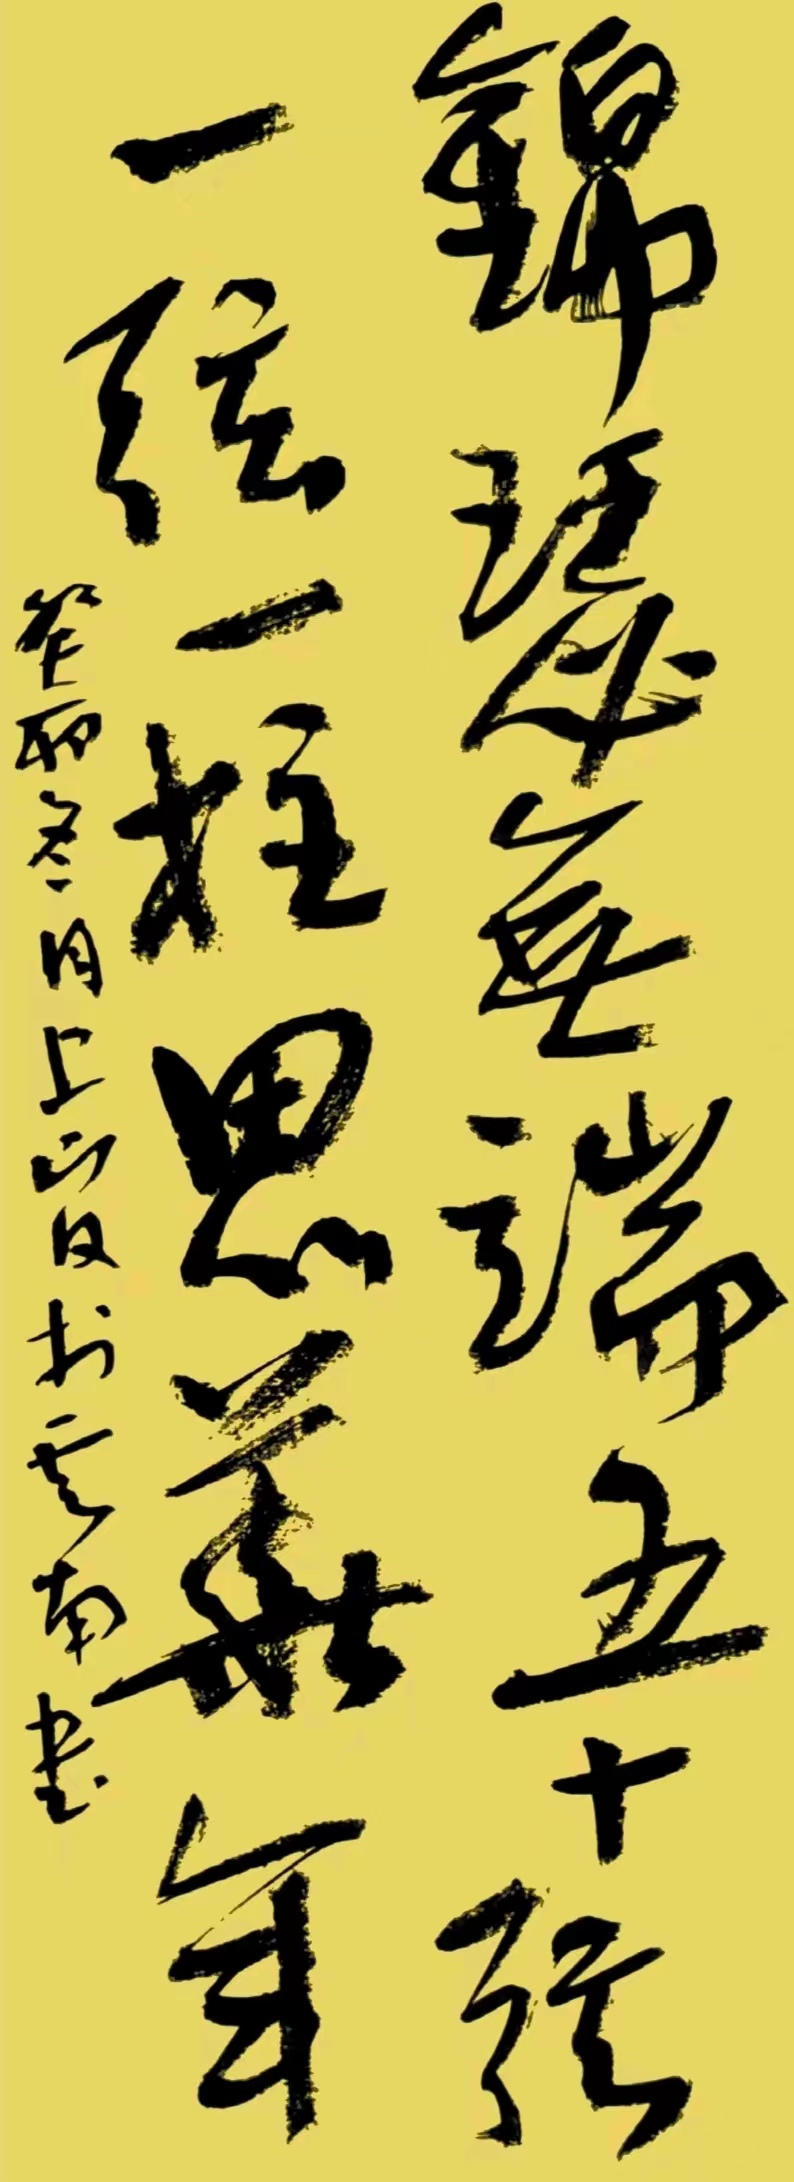 錦瑟無端五十弦
一弦一柱思華年
癸卯冬月上山日于云南书